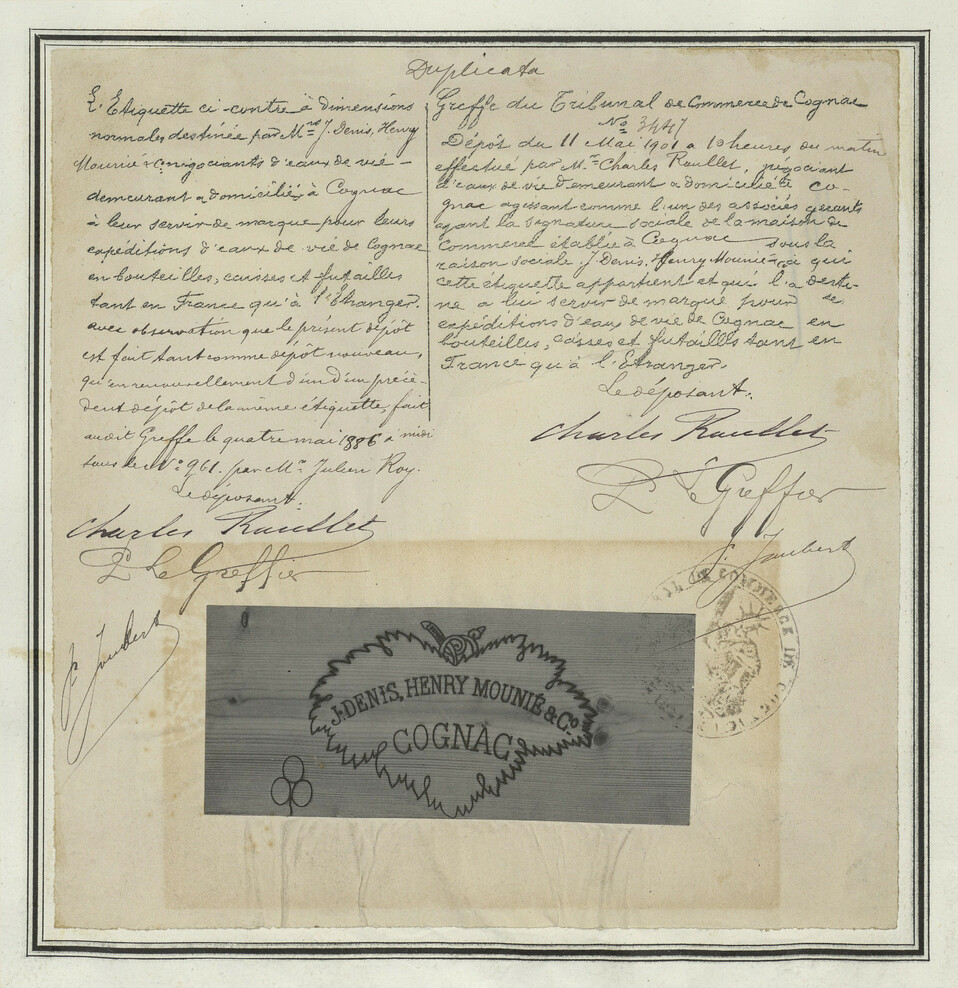 Duplicata
L'Etiquette ci-contre à dimensions
normales destinée par Mrs J. Denis, Henry
Mounié & Co négociants d'eaux de vie
demeurant & domiciliés à Cognac
à leur servir de marque pour leurs
expéditions d'eaux de vie de Cognac
en bouteilles, caisses et futailles
tant en France qu'à l'Etranger.
avec observation que le présent dépôt
est fait tant comme dépôt nouveau,
qu'en renouvellement d'un d'un précé-
dent dépôt de la même étiquette, fait
audit Greffe le quatre mai 1886 à midi
sous le No 961. par Mr Julien Roy.
Le déposant:
Charles Roullet
P. Le Greffier
J. Joubert
Greffe du Tribunal de Commerce de Cognac
No 3447
Dépôt du 11 Mai 1901 à 10 heures du matin
effectué par Mr Charles Roullet, négociant
d'eaux de vie demeurant & domicilié à Co-
gnac agissant comme l'un des associés gérants
ayant la signature sociale de la maison de
Commerce établie à Cognac sous la
raison sociale J. Denis, Henry Mounié & Co à qui
cette étiquette appartient et qui l'a desti-
né à lui servir de marque pour ses
expéditions d'eaux de vie de Cognac en
bouteilles, caisses et futailles tant en
France qu'à l'Etranger.
Le déposant:
Charles Roullet
P. Le Greffier
J. Joubert
COMMERCE DE
J. DENIS, HENRY MOUNIÉ & Co
COGNAC